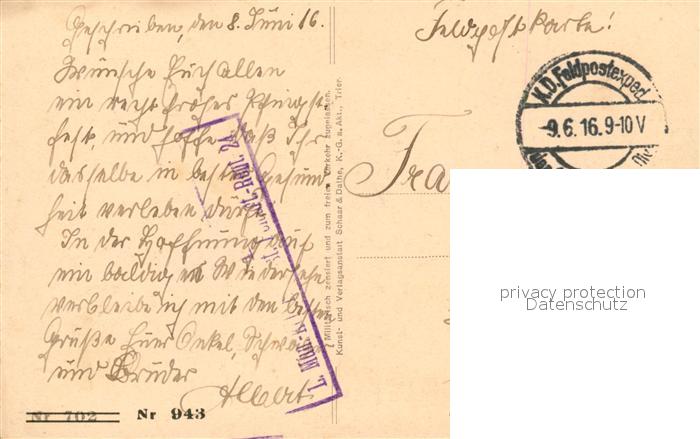 Geschrieben, den 8. Juni 16.
Feldpostkarte!
Wünsche Euch Allen
ein recht frohes Pfingst
fest, und hoffe daß Ihr
dasselbe in bester Gesund
heit verleben dürft.
In der Hoffnung auf
ein baldiges Wiedersehen
verbleibe ich mit den besten
Grüße Euer Onkel, Schwager
und Bruder
Albert
Nr 702 Nr 943
K.D. Feldpostexped.
-9.6.16. 9-10 V
Militärisch zensiert und zum freien Verkehr zugelassen.
Kunst- und Verlagsanstalt Schaar & Dathe, K.-G. a. Akt., Trier.
privacy protection
Datenschutz